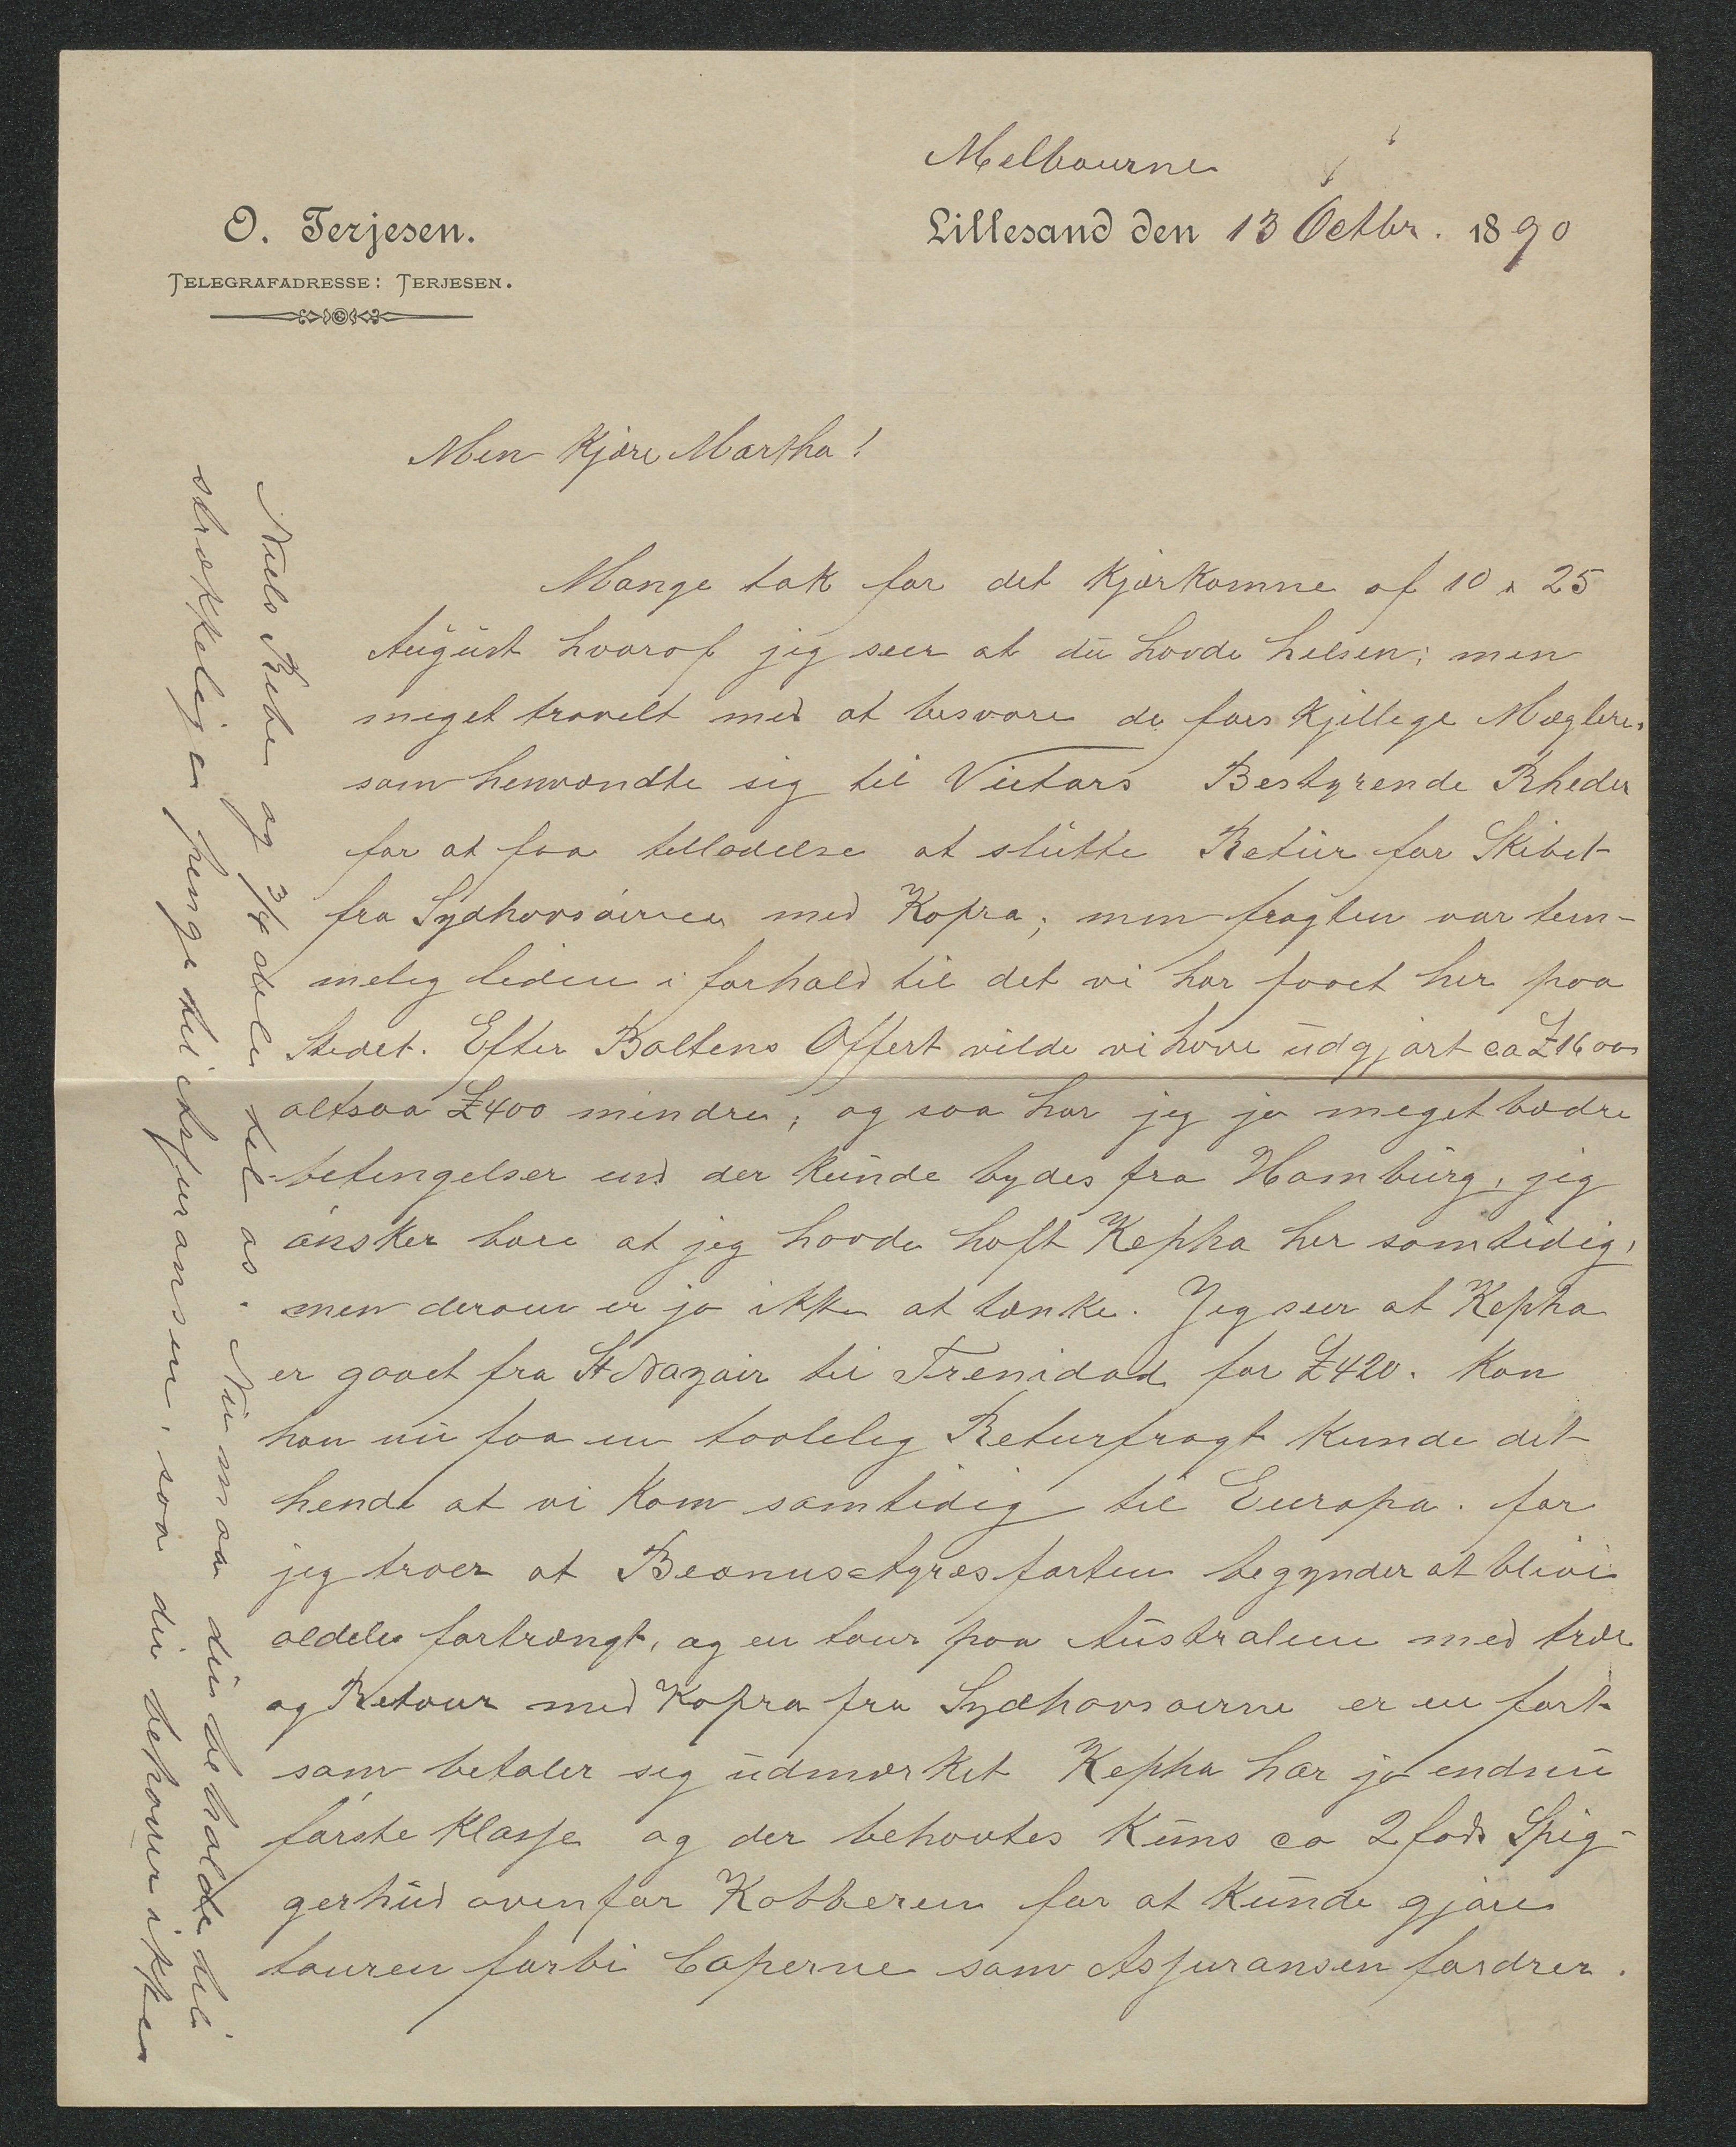 Melbourne
O. Terjesen.
Lillesand den 13 Octbr. 1890
TELEGRAFADRESSE: TERJESEN.
Min Kjære Martha!
Mange tak for det kjærkomne af 10 & 25
August hvoraf jeg seer at du havde helsen; men
meget travelt med at besvare de forskjellige Mæglere
som henvendte sig til Victors Bestyrende Rheder
for at faa tilladelse at slutte Retur for Skibet
fra Sydhavsøerne med Kopra; men fragten var tem-
melig liden i forhold til det vi har faaet her paa
Stedet. Efter Boltens Offert vilde vi have udgjort ca £1600
altsaa £400 mindre; og saa har jeg jo meget bædre
betingelser end der kunde bydes fra Hamburg, jeg
ønsker bare at jeg havde haft Kepha her samtidig,
men derom er jo ikke at tænke. Jeg seer at Kepha
er gaaet fra St Nazair til Trenidad for £420. Kan
han nu faa en taalelig Returfragt kunde det
hende at vi kom samtidig til Europa. for
jeg troer at farten begynder at blive
aldeles fortrængt, og en tour paa Australien med træl
og Retour med Kopra fra Sydhavsøerne er en fart
som betaler sig udmærket Kepha har jo endnu
første Klasse og der behøvtes kuns ca 2 fods Spig-
gerhud ovenfor Kobberen for at kunde gjøre
touren forbi Caperne som Assuransen fordrer.
Niels Bebe og 3/4 dele til os. Nu maa du beholde til
strækkelig penge til Assuransen, saa du behøver ikke